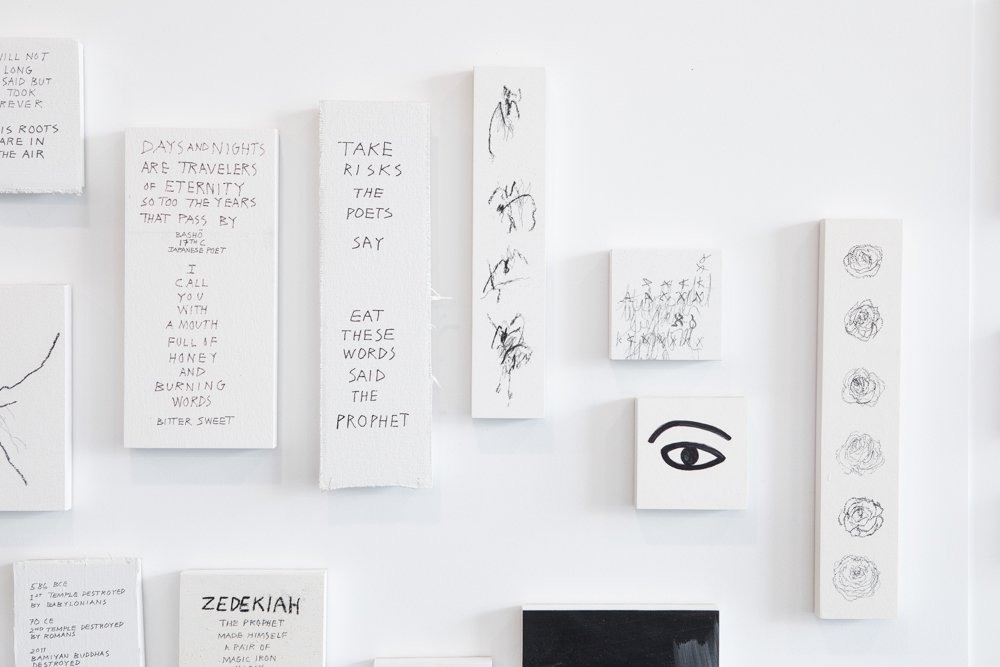 WILL NOT
LONG
SAID BUT
TOOK
REVER
IS ROOTS
ARE IN
THE AIR
DAYS AND NIGHTS
ARE TRAVELERS
OF ETERNITY
SO TOO THE YEARS
THAT PASS BY
BASHŌ
17TH C
JAPANESE POET
I
CALL
YOU
WITH
A MOUTH
FULL OF
HONEY
AND
BURNING
WORDS
BITTER SWEET
TAKE
RISKS
THE
POETS
SAY
EAT
THESE
WORDS
SAID
THE
PROPHET
586 BCE
1ST TEMPLE DESTROYED
BY BABYLONIANS
70 CE
2ND TEMPLE DESTROYED
BY ROMANS
2011
BAMIYAN BUDDHAS
DESTROYED
ZEDEKIAH
THE PROPHET
MADE HIMSELF
A PAIR OF
MAGIC IRON